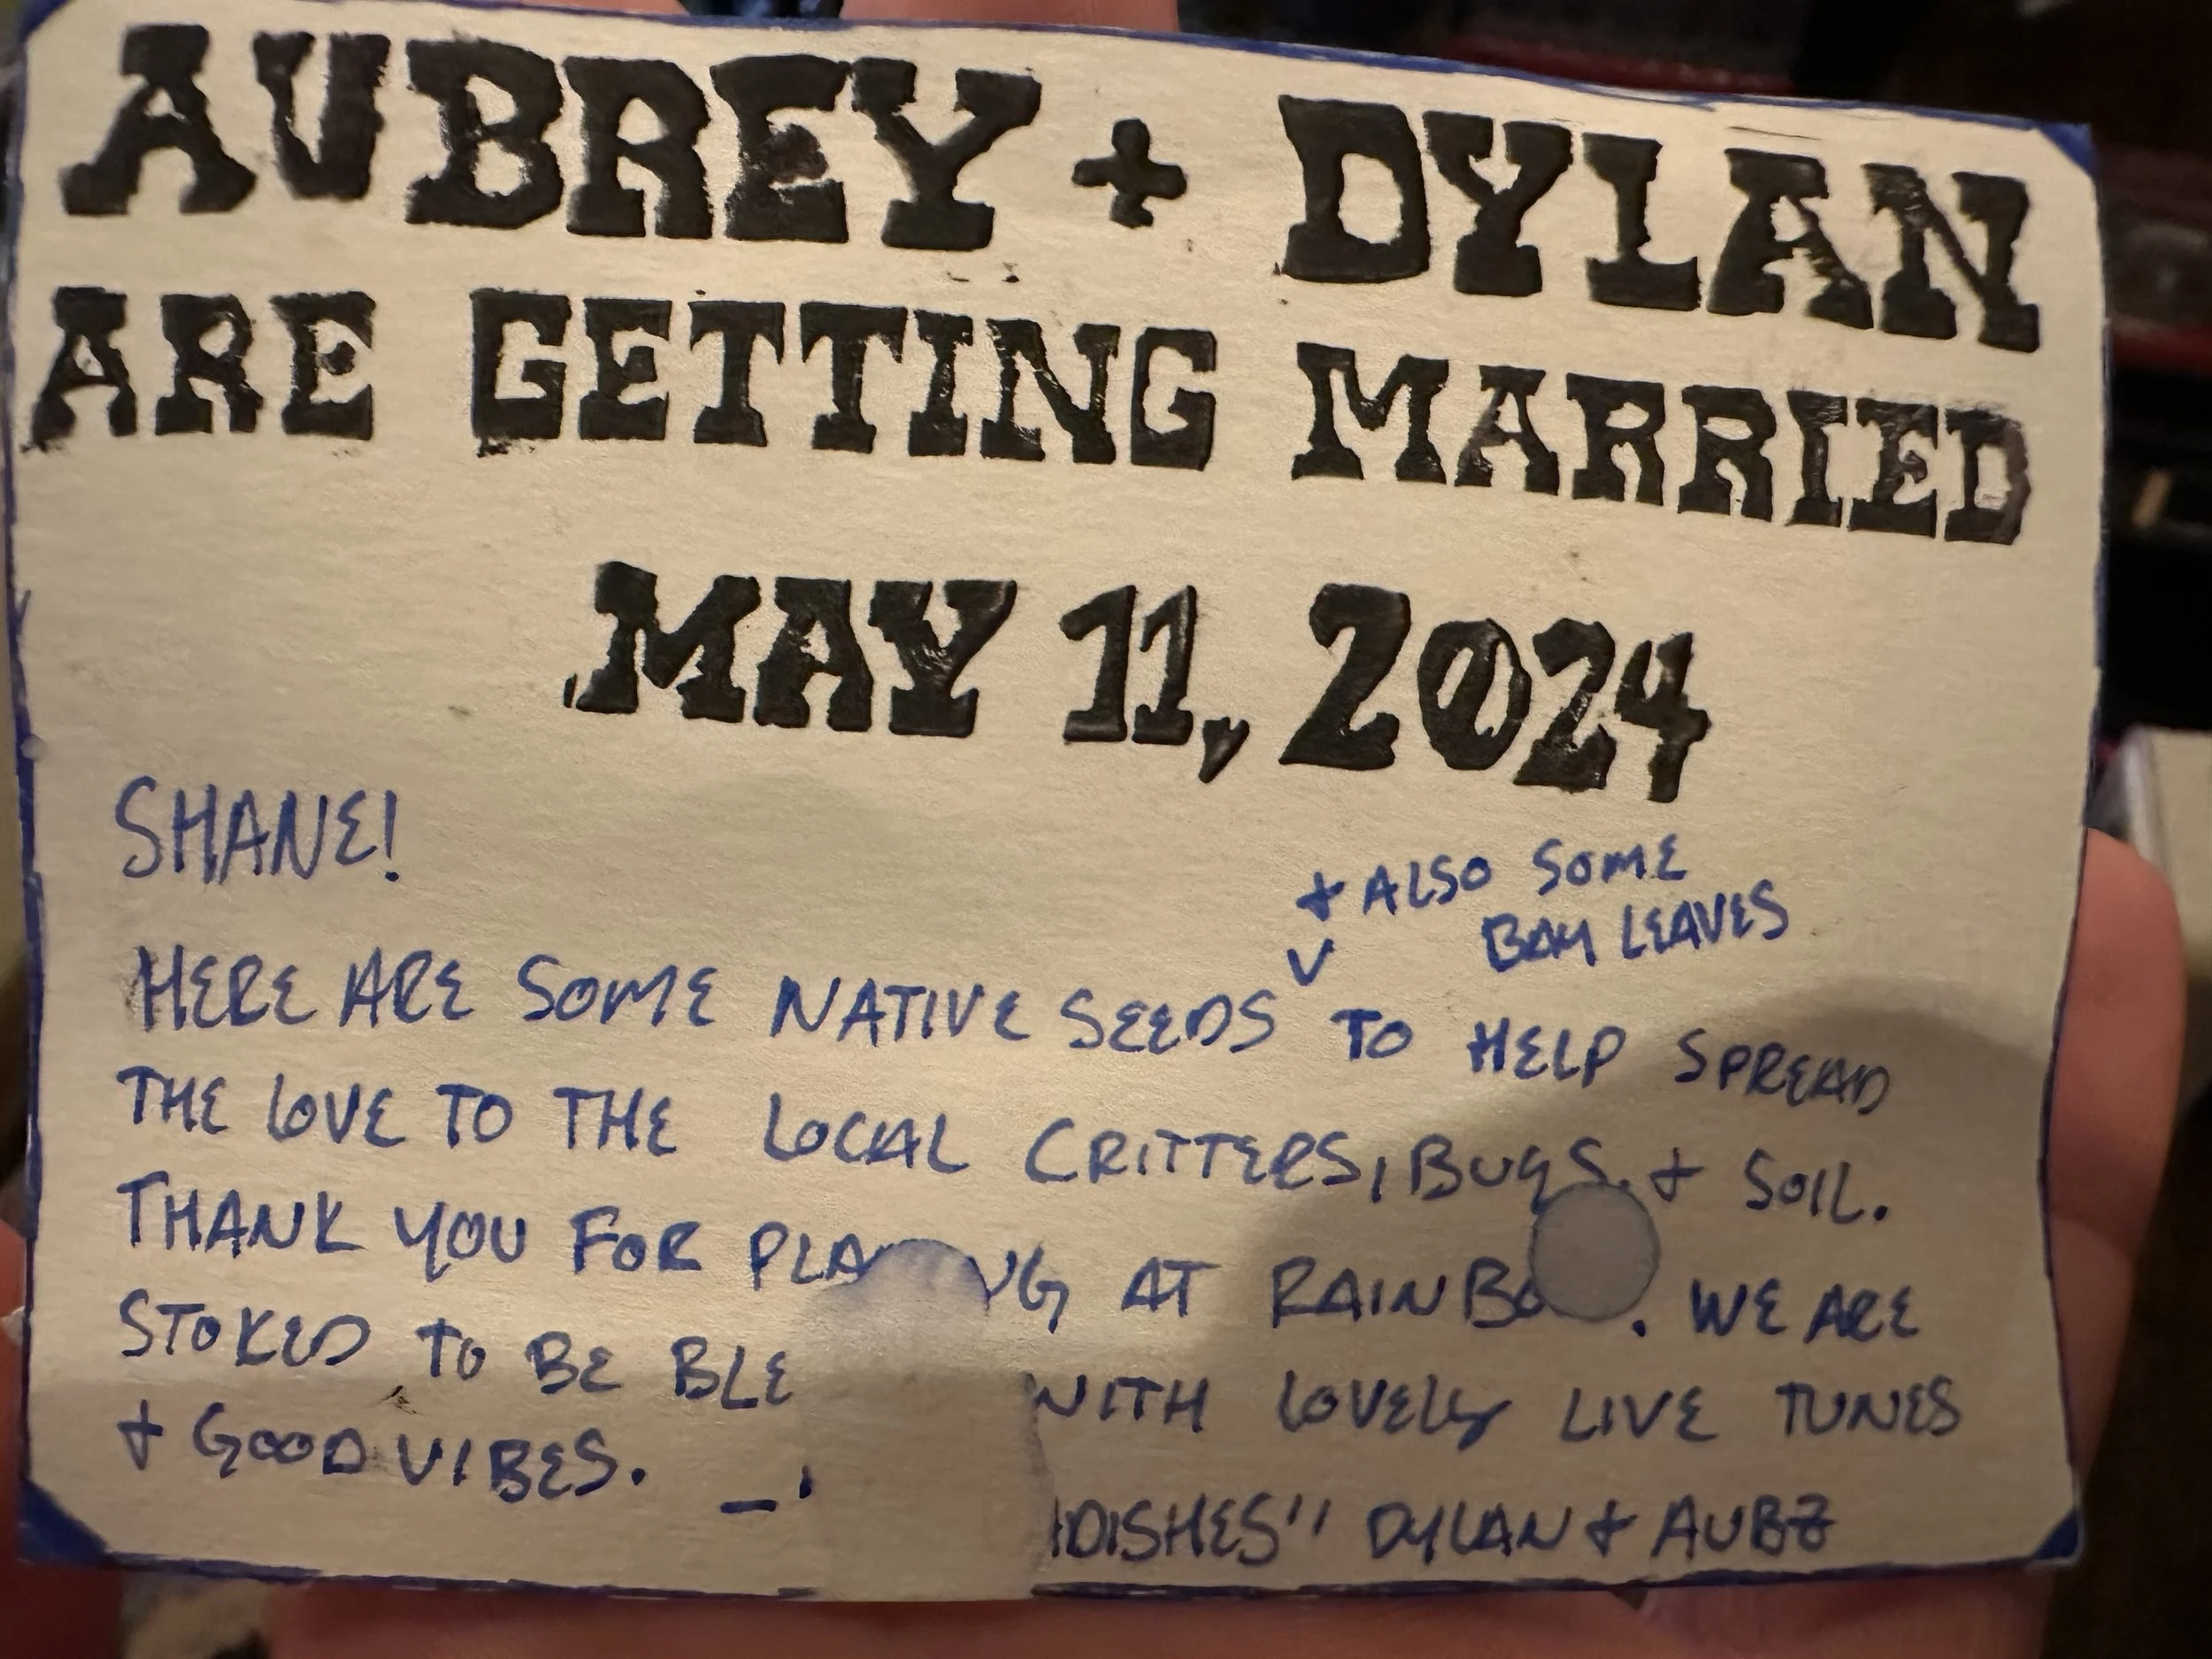 AUBREY + DYLAN
ARE GETTING MARRIED
MAY 11, 2024
SHANE!
+ ALSO SOME
BAY LEAVES
HERE ARE SOME NATIVE SEEDS TO HELP SPREAD
THE LOVE TO THE LOCAL CRITTERS, BUGS, + SOIL.
THANK YOU FOR AT WE ARE
STOKED TO BE WITH LOVELY LIVE TUNES
+ GOOD VIBES.
DYLAN + AUBZ